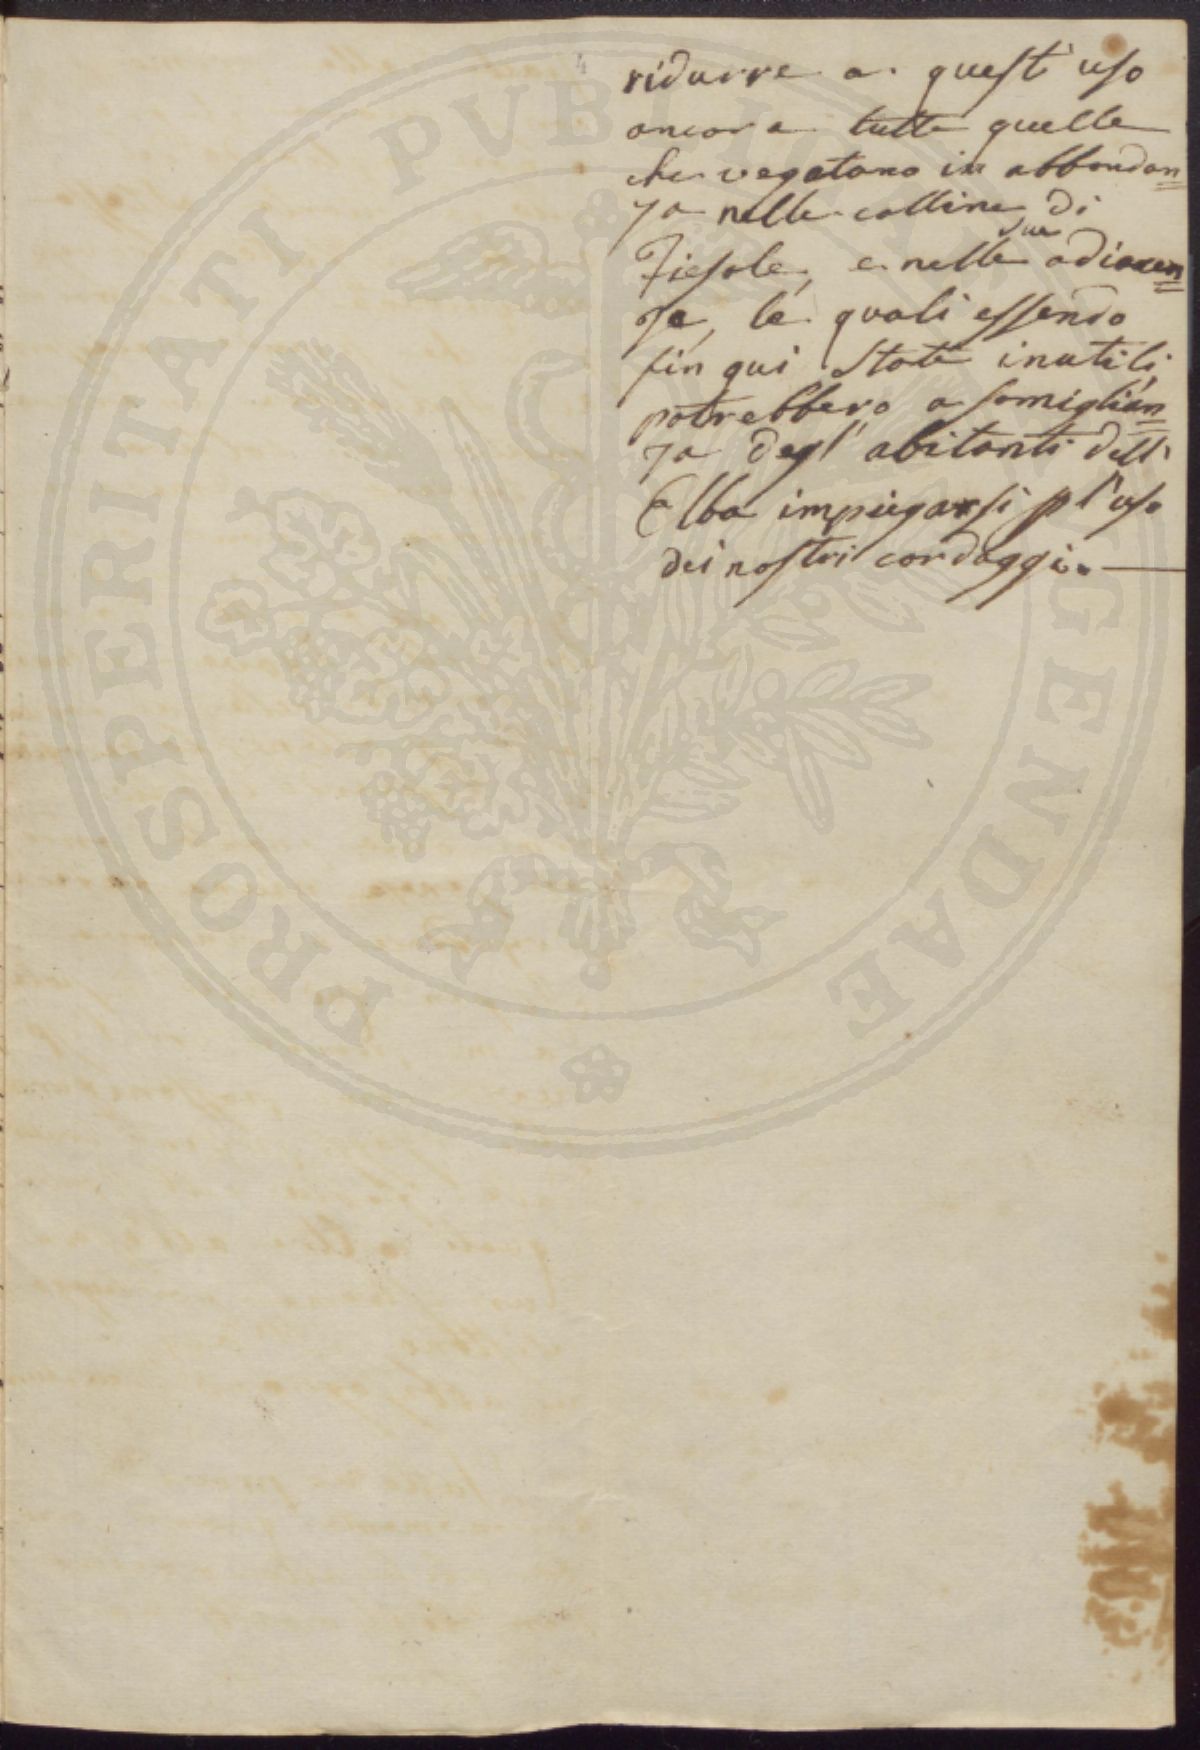 ridurre a quest'uso
ancora tutte quelle
che vegetano in abbondan=
za nelle colline di
Fiesole, e nelle sue adiacen=
ze, le quali essendo
fin qui state inutili,
potrebbero a somiglian=
za degl'abitanti dell'
Elba impiegarsi p l'uso
dei nostri cordaggi.—
PROSPERITATI PUBLICAE AUGENDAE